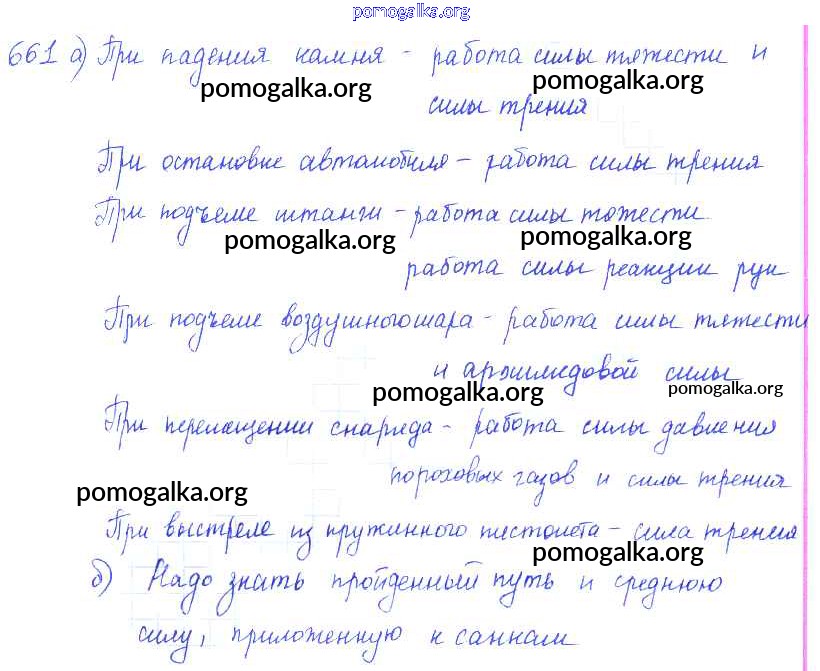 pomogalka.org
661 а) При падения камня - работа силы тяжести и
pomogalka.org pomogalka.org
силы трения
При остановке автомобиля - работа силы трения
При подъеме штанги - работа силы тяжести.
pomogalka.org pomogalka.org
работа силы реакции рук
При подъеме воздушного шара - работа силы тяжести
и архимедовой силы
pomogalka.org pomogalka.org
При перемещении снаряда - работа силы давления
пороховых газов и силы трения
pomogalka.org
При выстреле из пружинного пистолета - сила трения
pomogalka.org
б) Надо знать пройденный путь и среднюю
силу, приложенную к санкам